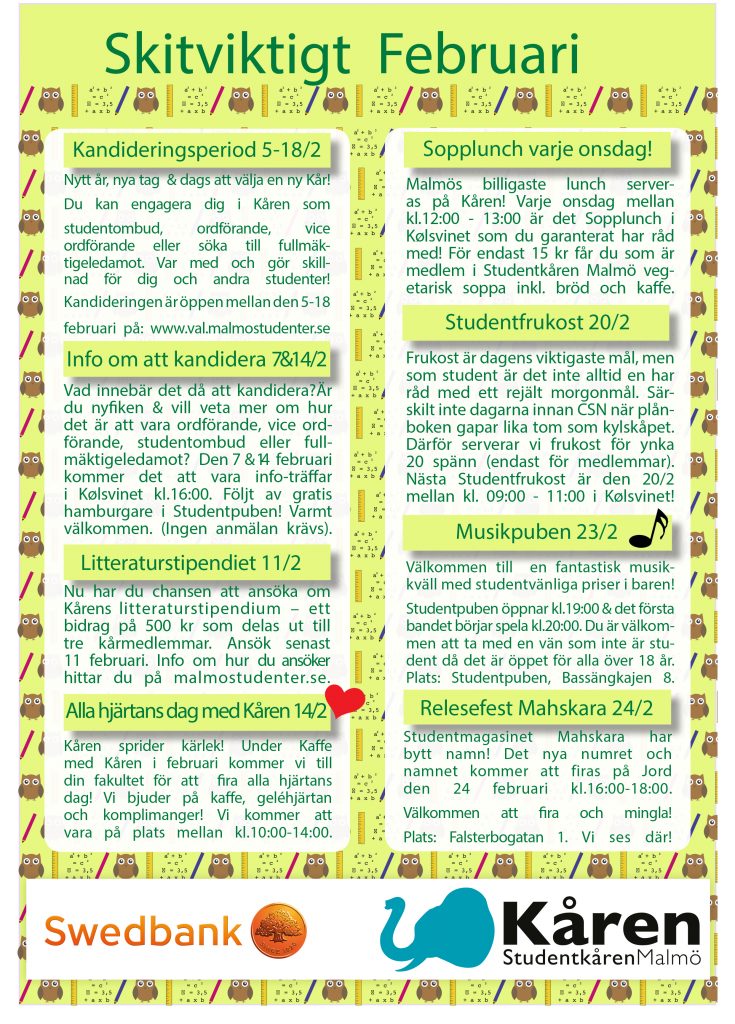 Skitviktigt Februari
Kandideringsperiod 5-18/2
Nytt år, nya tag & dags att välja en ny Kår!
Du kan engagera dig i Kåren som
studentombud, ordförande, vice
ordförande eller söka till fullmäk-
tigeledamot. Var med och gör skill-
nad för dig och andra studenter!
Kandideringen är öppen mellan den 5-18
februari på: www.val.malmostudenter.se
Info om att kandidera 7&14/2
Vad innebär det då att kandidera?Är
du nyfiken & vill veta mer om hur
det är att vara ordförande, vice ord-
förande, studentombud eller full-
mäktigeledamot? Den 7 & 14 februari
kommer det att vara info-träffar
i Kølsvinet kl.16:00. Följt av gratis
hamburgare i Studentpuben! Varmt
välkommen. (Ingen anmälan krävs).
Litteraturstipendiet 11/2
Nu har du chansen att ansöka om
Kårens litteraturstipendium – ett
bidrag på 500 kr som delas ut till
tre kårmedlemmar. Ansök senast
11 februari. Info om hur du ansöker
hittar du på malmostudenter.se.
Alla hjärtans dag med Kåren 14/2
Kåren sprider kärlek! Under Kaffe
med Kåren i februari kommer vi till
din fakultet för att fira alla hjärtans
dag! Vi bjuder på kaffe, geléhjärtan
och komplimanger! Vi kommer att
vara på plats mellan kl.10:00-14:00.
Sopplunch varje onsdag!
Malmös billigaste lunch server-
as på Kåren! Varje onsdag mellan
kl.12:00 - 13:00 är det Sopplunch i
Kølsvinet som du garanterat har råd
med! För endast 15 kr får du som är
medlem i Studentkåren Malmö veg-
etarisk soppa inkl. bröd och kaffe.
Studentfrukost 20/2
Frukost är dagens viktigaste mål, men
som student är det inte alltid en har
råd med ett rejält morgonmål. Sär-
skilt inte dagarna innan CSN när plån-
boken gapar lika tom som kylskåpet.
Därför serverar vi frukost för ynka
20 spänn (endast för medlemmar).
Nästa Studentfrukost är den 20/2
mellan kl. 09:00 - 11:00 i Kølsvinet!
Musikpuben 23/2
Välkommen till en fantastisk musik-
kväll med studentvänliga priser i baren!
Studentpuben öppnar kl.19:00 & det första
bandet börjar spela kl.20:00. Du är välkom-
men att ta med en vän som inte är stu-
dent då det är öppet för alla över 18 år.
Plats: Studentpuben, Bassängkajen 8.
Relesefest Mahskara 24/2
Studentmagasinet Mahskara har
bytt namn! Det nya numret och
namnet kommer att firas på Jord
den 24 februari kl.16:00-18:00.
Välkommen att fira och mingla!
Plats: Falsterbogatan 1. Vi ses där!
Swedbank
Kåren
StudentkårenMalmö